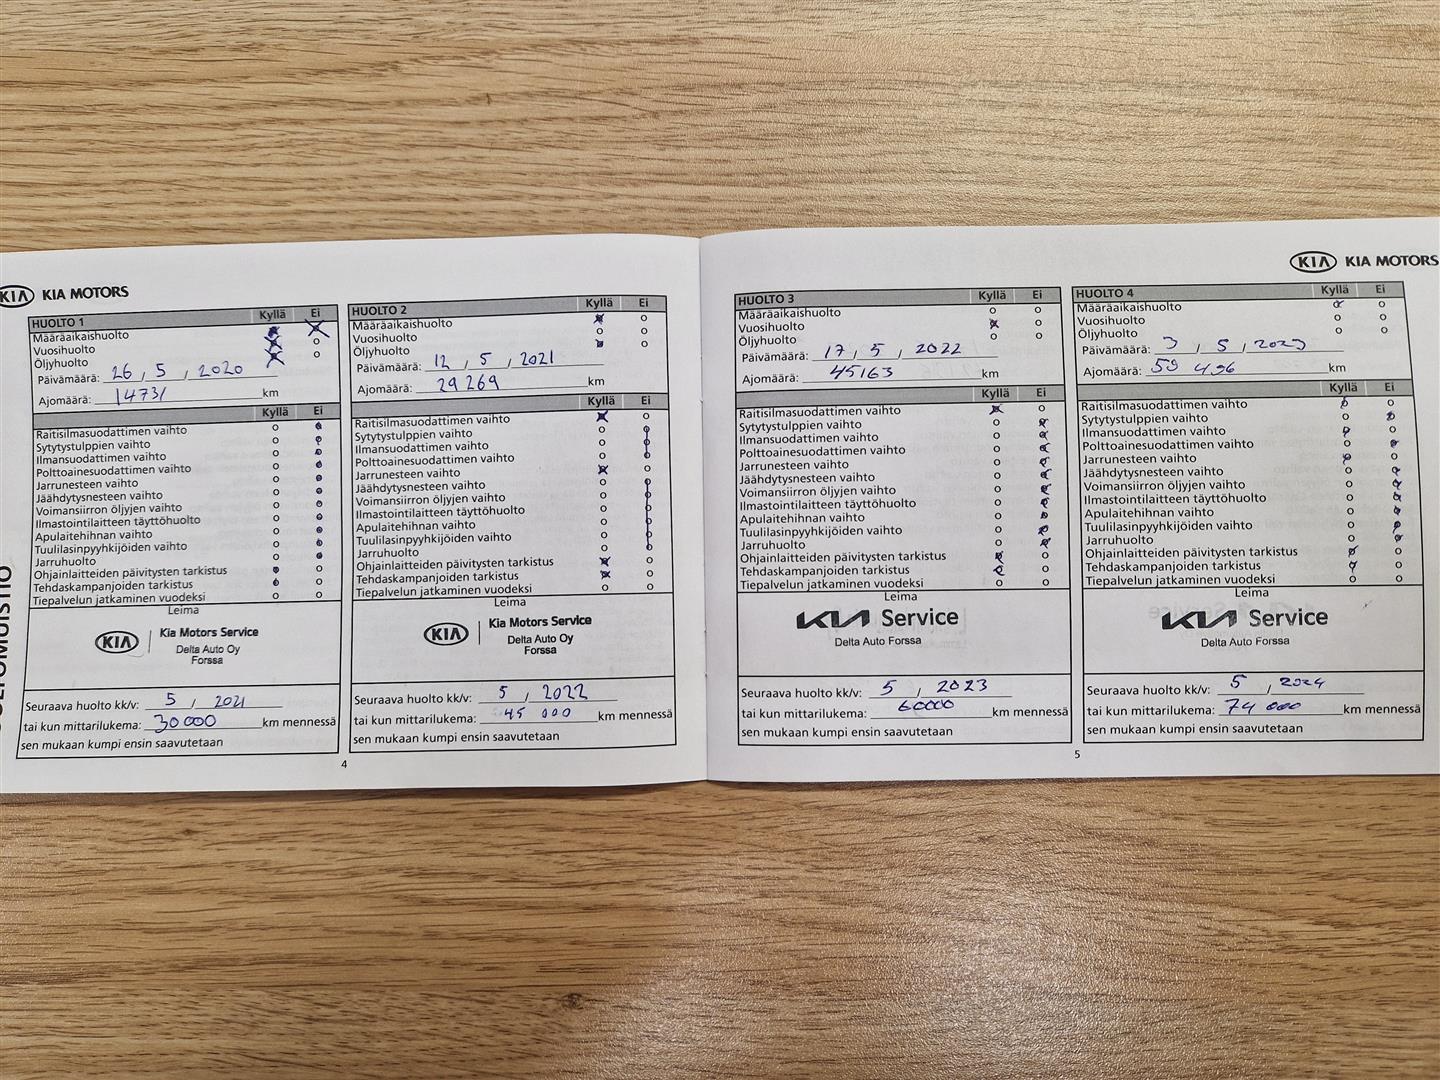 KIA KIA MOTORS
HUOLTO 1 Kyllä Ei
Määräaikaishuolto
Vuosihuolto
Öljyhuolto
Päivämäärä: 26 , 5 , 2020
Ajomäärä: 14731 km
Kyllä Ei
Raitisilmasuodattimen vaihto
Sytytystulppien vaihto
Ilmansuodattimen vaihto
Polttoainesuodattimen vaihto
Jarrunesteen vaihto
Jäähdytysnesteen vaihto
Voimansiirron öljyjen vaihto
Ilmastointilaitteen täyttöhuolto
Apulaitehihnan vaihto
Tuulilasinpyyhkijöiden vaihto
Jarruhuolto
Ohjainlaitteiden päivitysten tarkistus
Tehdaskampanjoiden tarkistus
Tiepalvelun jatkaminen vuodeksi
Leima
KIA Kia Motors Service
Delta Auto Oy
Forssa
Seuraava huolto kk/v: 5 / 2021
tai kun mittarilukema: 30000 km mennessä
sen mukaan kumpi ensin saavutetaan
HUOLTO 2 Kyllä Ei
Määräaikaishuolto
Vuosihuolto
Öljyhuolto
Päivämäärä: 12 , 5 , 2021
Ajomäärä: 29 269 km
Kyllä Ei
Raitisilmasuodattimen vaihto
Sytytystulppien vaihto
Ilmansuodattimen vaihto
Polttoainesuodattimen vaihto
Jarrunesteen vaihto
Jäähdytysnesteen vaihto
Voimansiirron öljyjen vaihto
Ilmastointilaitteen täyttöhuolto
Apulaitehihnan vaihto
Tuulilasinpyyhkijöiden vaihto
Jarruhuolto
Ohjainlaitteiden päivitysten tarkistus
Tehdaskampanjoiden tarkistus
Tiepalvelun jatkaminen vuodeksi
Leima
KIA Kia Motors Service
Delta Auto Oy
Forssa
Seuraava huolto kk/v: 5 / 2022
tai kun mittarilukema: 45 000 km mennessä
sen mukaan kumpi ensin saavutetaan
4
KIA KIA MOTORS
HUOLTO 3 Kyllä Ei
Määräaikaishuolto
Vuosihuolto
Öljyhuolto
Päivämäärä: 17 , 5 , 2022
Ajomäärä: 45163 km
Kyllä Ei
Raitisilmasuodattimen vaihto
Sytytystulppien vaihto
Ilmansuodattimen vaihto
Polttoainesuodattimen vaihto
Jarrunesteen vaihto
Jäähdytysnesteen vaihto
Voimansiirron öljyjen vaihto
Ilmastointilaitteen täyttöhuolto
Apulaitehihnan vaihto
Tuulilasinpyyhkijöiden vaihto
Jarruhuolto
Ohjainlaitteiden päivitysten tarkistus
Tehdaskampanjoiden tarkistus
Tiepalvelun jatkaminen vuodeksi
Leima
KIA Service
Delta Auto Forssa
Seuraava huolto kk/v: 5 , 2023
tai kun mittarilukema: 60000 km mennessä
sen mukaan kumpi ensin saavutetaan
HUOLTO 4 Kyllä Ei
Määräaikaishuolto
Vuosihuolto
Öljyhuolto
Päivämäärä: 3 , 5 , 2023
Ajomäärä: 59 496 km
Kyllä Ei
Raitisilmasuodattimen vaihto
Sytytystulppien vaihto
Ilmansuodattimen vaihto
Polttoainesuodattimen vaihto
Jarrunesteen vaihto
Jäähdytysnesteen vaihto
Voimansiirron öljyjen vaihto
Ilmastointilaitteen täyttöhuolto
Apulaitehihnan vaihto
Tuulilasinpyyhkijöiden vaihto
Jarruhuolto
Ohjainlaitteiden päivitysten tarkistus
Tehdaskampanjoiden tarkistus
Tiepalvelun jatkaminen vuodeksi
Leima
KIA Service
Delta Auto Forssa
Seuraava huolto kk/v: 5 , 2024
tai kun mittarilukema: 74 000 km mennessä
sen mukaan kumpi ensin saavutetaan
5